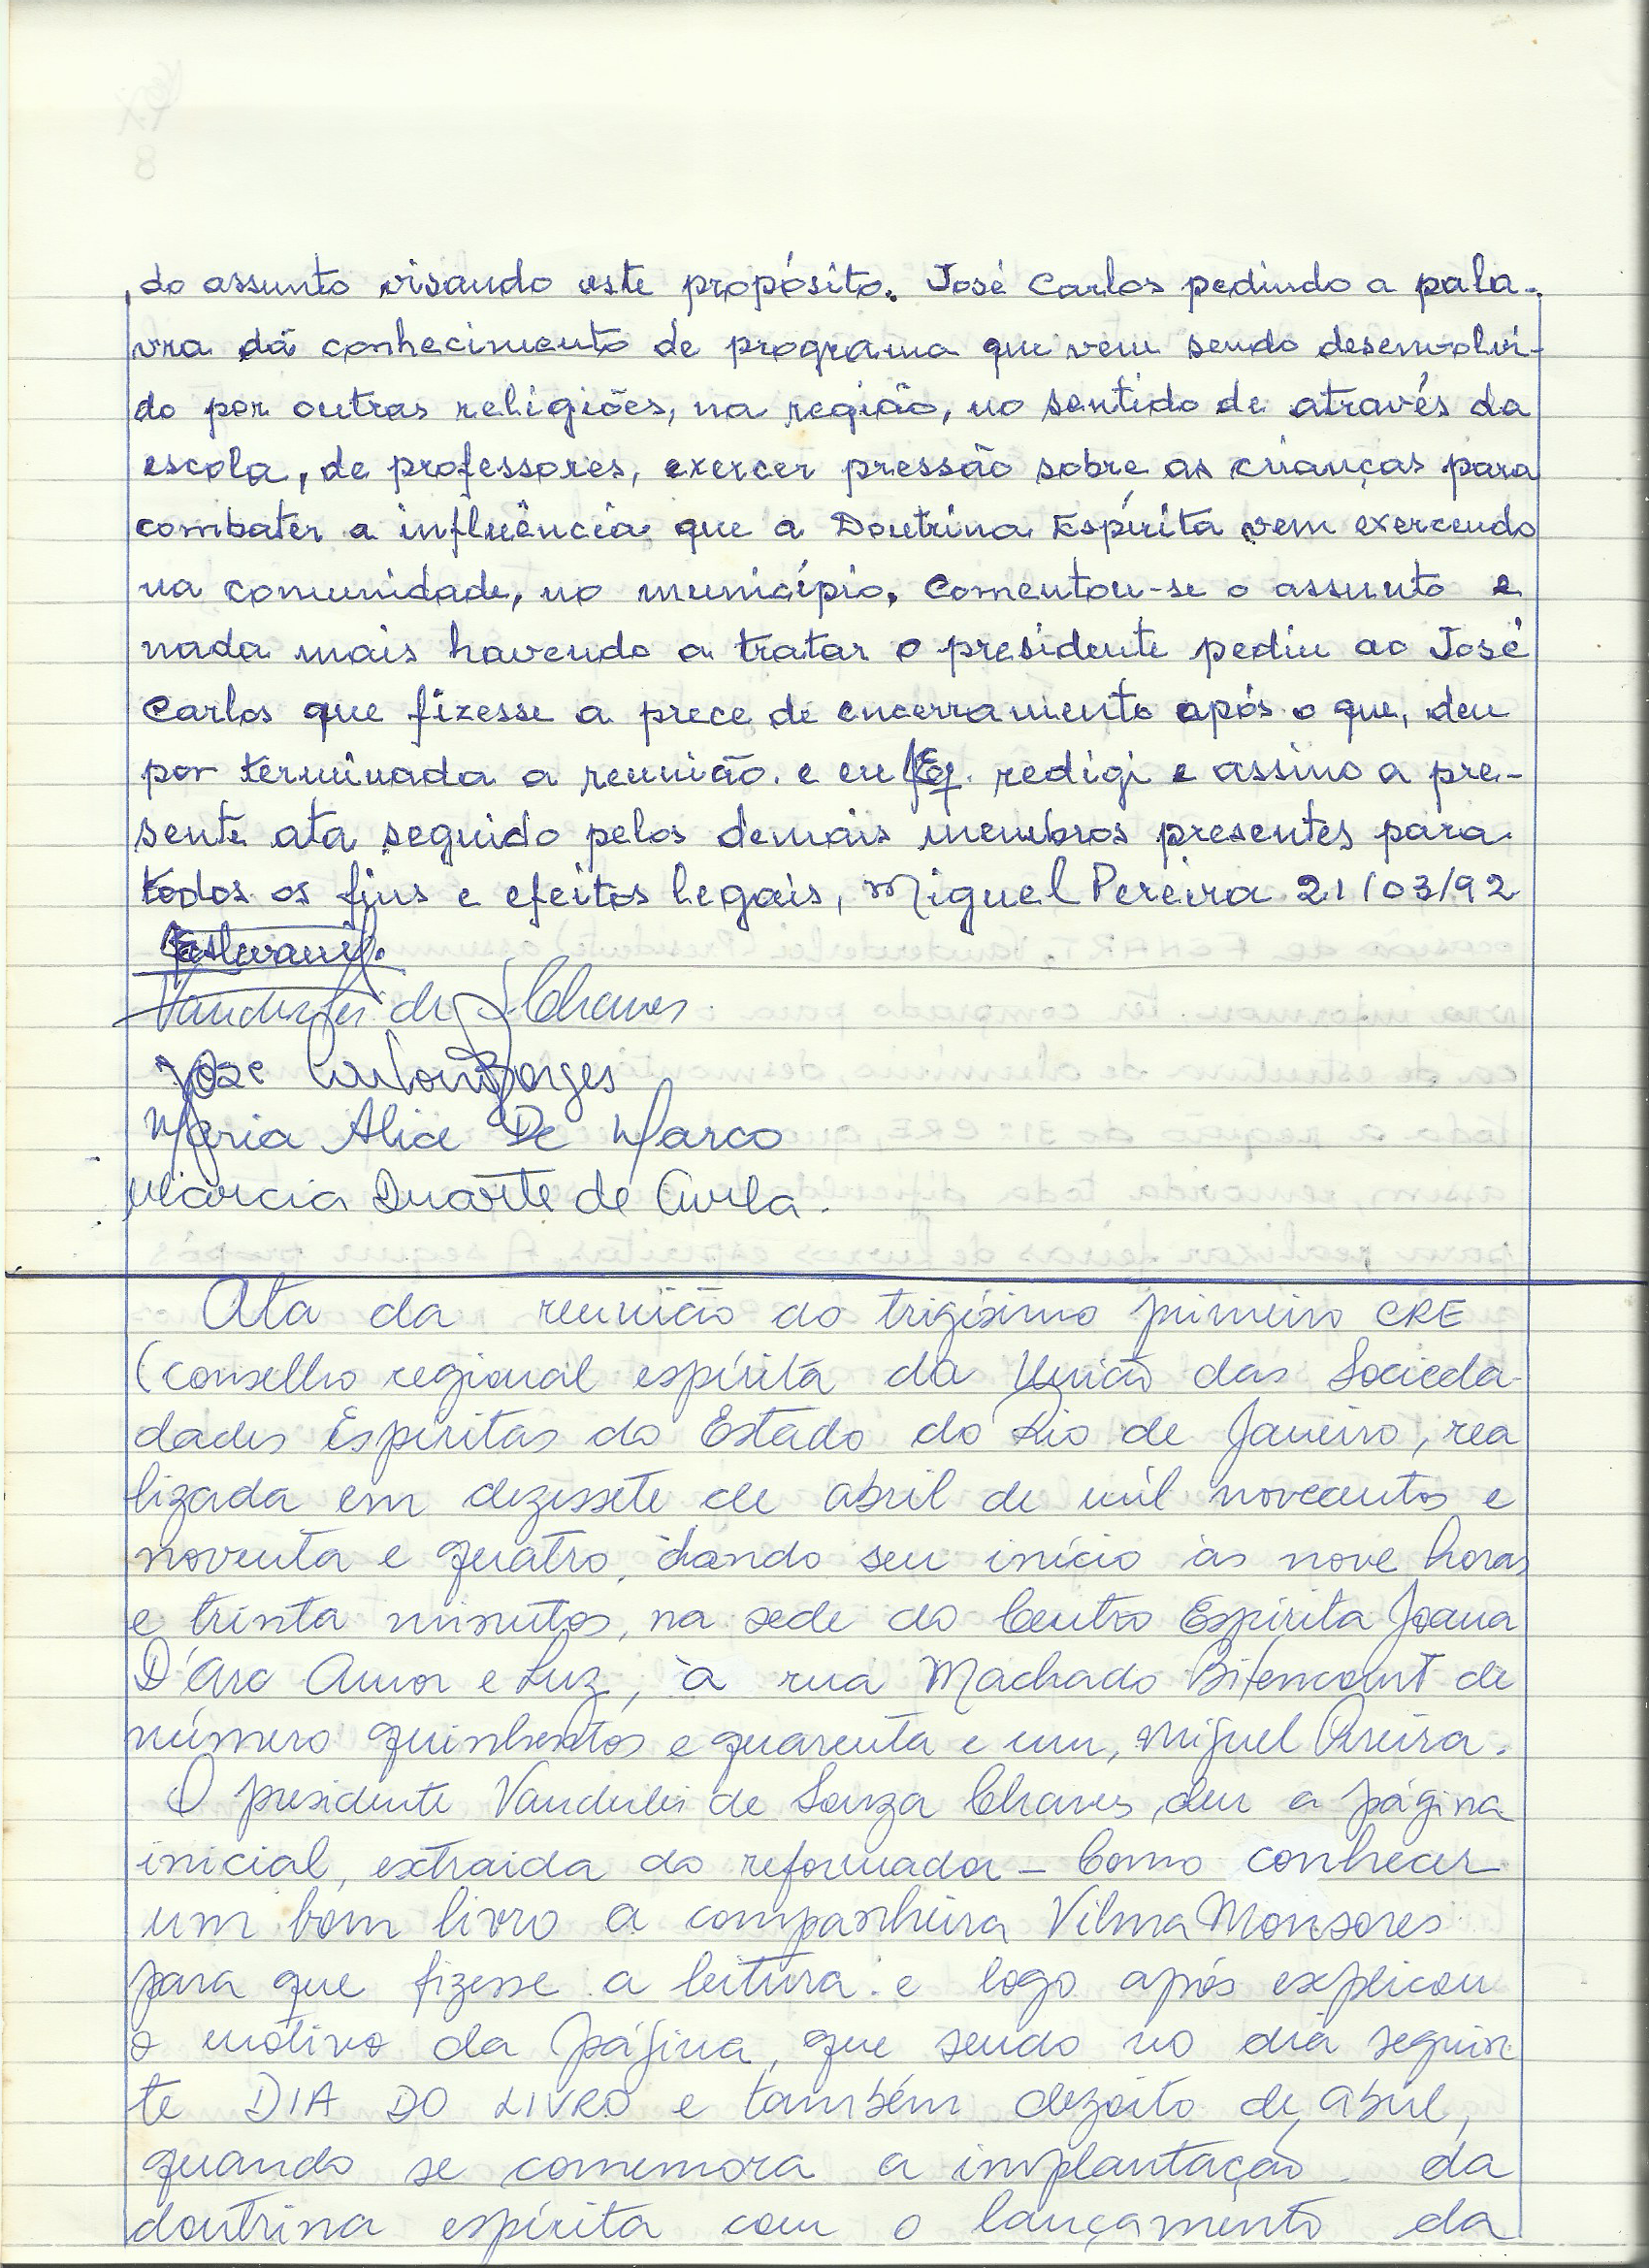 do assunto visando este propósito. José Carlos pedindo a pala-
vra dá conhecimento de programa que vem sendo desenvolvi-
do por outras religiões, na região, no sentido de através da
escola, de professores, exercer pressão sobre as crianças para
combater a influência que a Doutrina Espírita vem exercendo
na comunidade, no município. Comentou-se o assunto e
nada mais havendo a tratar o presidente pediu ao José
Carlos que fizesse a prece de encerramento após o que, deu
por terminada a reunião. e eu redigi e assino a pre-
sente ata seguido pelos demais membros presentes para
todos os fins e efeitos legais, Miguel Pereira 21/03/92
Vanderlei de S Chaves
José Borges
Maria Alice De Marco
Márcia Duarte de Avila.
Ata da reunião do trigésimo primeiro CRE
(conselho regional espírita da União das Socieda-
dades Espíritas do Estado do Rio de Janeiro, rea
lizada em dezessete de abril de mil novecentos e
noventa e quatro, dando seu início às nove horas
e trinta minutos, na sede do Centro Espírita Joana
D'Arc Amor e Luz, à rua Machado Bitencourt de
número quinhentos e quarenta e um, Miguel Pereira.
O presidente Vanderlei de Souza Chaves, deu a página
inicial, extraida do reformador - Como conhecer
um bom livro a companheira Vilma Monsores
para que fizesse a leitura e logo após explicou
o motivo da página, que sendo no dia seguin
te DIA DO LIVRO e também dezoito de abril,
quando se comemora a implantação da
doutrina espírita com o lançamento da